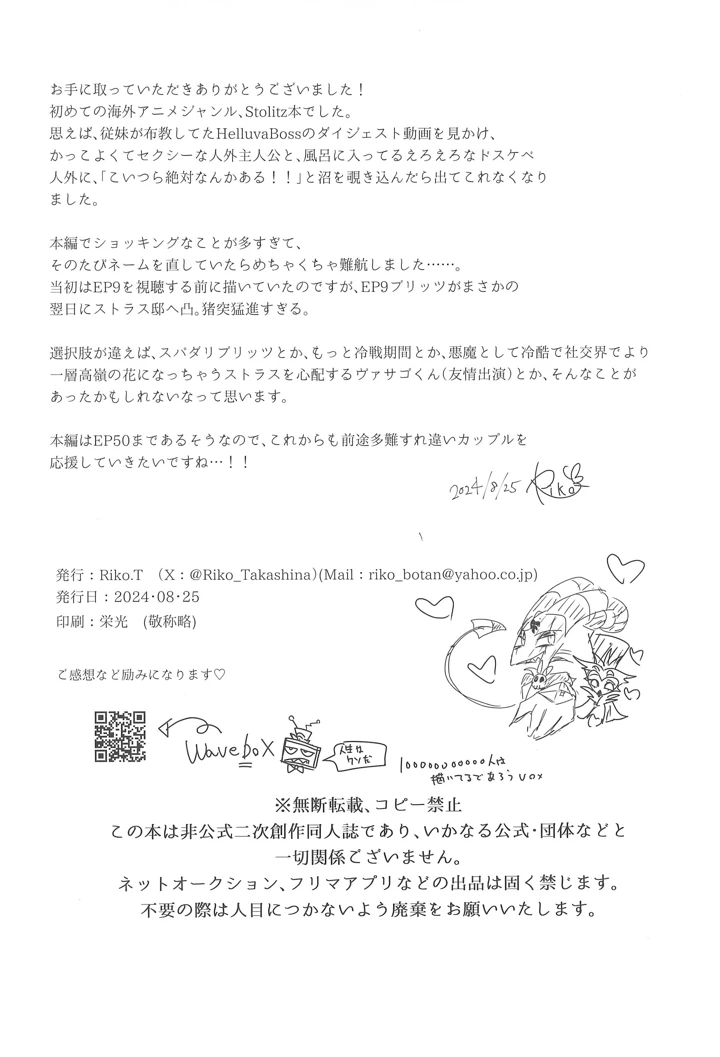 お手に取っていただきありがとうございました！
初めての海外アニメジャンル、Stolitz本でした。
思えば、従妹が布教してたHelluvaBossのダイジェスト動画を見かけ、
かっこよくてセクシーな人外主人公と、風呂に入ってるえろえろなドスケベ
人外に、「こいつら絶対なんかある！！」と沼を覗き込んだら出てこれなくなり
ました。
本編でショッキングなことが多すぎて、
そのたびネームを直していたらめちゃくちゃ難航しました……。
当初はEP9を視聴する前に描いていたのですが、EP9ブリッツがまさかの
翌日にストラス邸へ凸。猪突猛進すぎる。
選択肢が違えば、スパダリブリッツとか、もっと冷戦期間とか、悪魔として冷酷で社交界でより
一層高嶺の花になっちゃうストラスを心配するヴァサゴくん（友情出演）とか、そんなことが
あったかもしれないなって思います。
本編はEP50まであるそうなので、これからも前途多難すれ違いカップルを
応援していきたいですね…！！
2024/8/25 Riko
発行：Riko.T （X：@Riko_Takashina）(Mail：riko_botan@yahoo.co.jp)
発行日：2024・08・25
印刷：栄光 (敬称略)
ご感想など励みになります♡
WaveboX
人生は
クソだ
100000000000人は
描いてるであろうVOX
※無断転載、コピー禁止
この本は非公式二次創作同人誌であり、いかなる公式・団体などと
一切関係ございません。
ネットオークション、フリマアプリなどの出品は固く禁じます。
不要の際は人目につかないよう廃棄をお願いいたします。